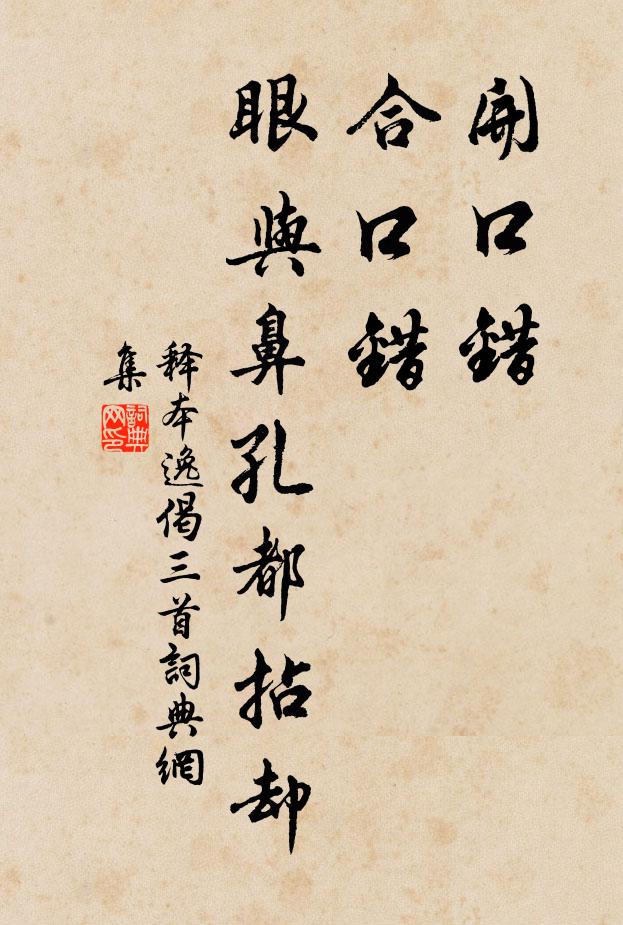 開口錯
合口錯
眼與鼻孔都拈却
释本逸偈三首詞典網
集
詞典
网印